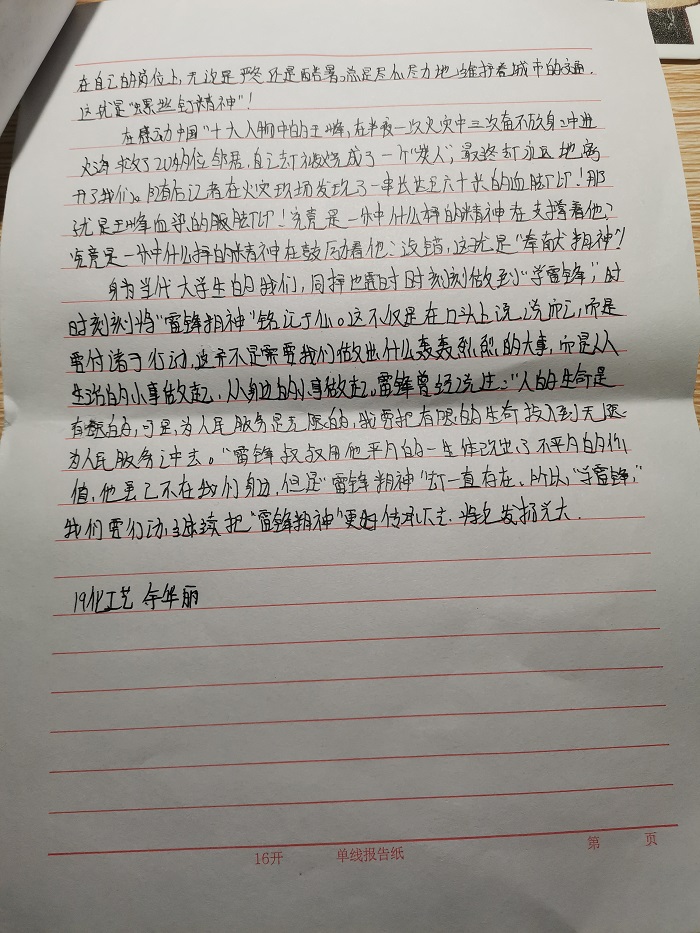 在自己的岗位上,无论是严冬还是酷暑,总是尽心尽力地维护着城市的交通.
这就是"螺丝钉精神"!
在感动中国"十大人物中的王锋,在半夜一次火灾中三次奋不顾身冲进
火海救了20多位邻居,自己却被烧成了一个"炭人",最终却永远地离
开了我们。随后记者在火灾现场发现了一串长达五六十米的血脚印!那
就是王锋血染的脚印!究竟是一种什么样的精神在支撑着他?
究竟是一种什么样的精神在鼓励着他?没错,这就是"奉献精神"!
身为当代大学生的我们,同样也要时时刻刻做到"学雷锋",时
时刻刻将"雷锋精神"铭记于心。这不仅是在口头上说说而已,而是
要付诸于行动,这并不是需要我们做出什么轰轰烈烈的大事,而是从
生活的小事做起,从身边的小事做起。雷锋曾经说过:"人的生命是
有限的,可是,为人民服务是无限的,我要把有限的生命投入到无限
为人民服务之中去。"雷锋叔叔用他平凡的一生体现出了不平凡的价
值,他虽已不在我们身边,但是"雷锋精神"却一直存在、所以,"学雷锋,"
我们要行动,继续把"雷锋精神"更好传承下去.将它发扬光大.
19化工艺 余华丽
16开 单线报告纸 第 页